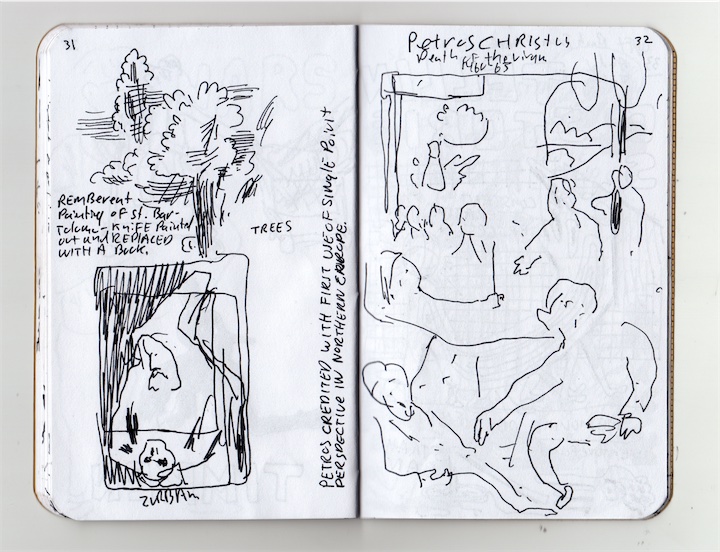 31
REMBERENT
PAINTING OF ST. BAR-
TOLOMU - KNIFE PAINTED
OUT AND REPLACED
WITH A BOOK.
TREES
ZURBRAN
PETROS CREDITED WITH FIRST USE OF SINGLE POINT
PERSPECTIVE IN NORTHERN EUROPE.
32
PETROS CHRISTUS
Death of the virgin
1460-65